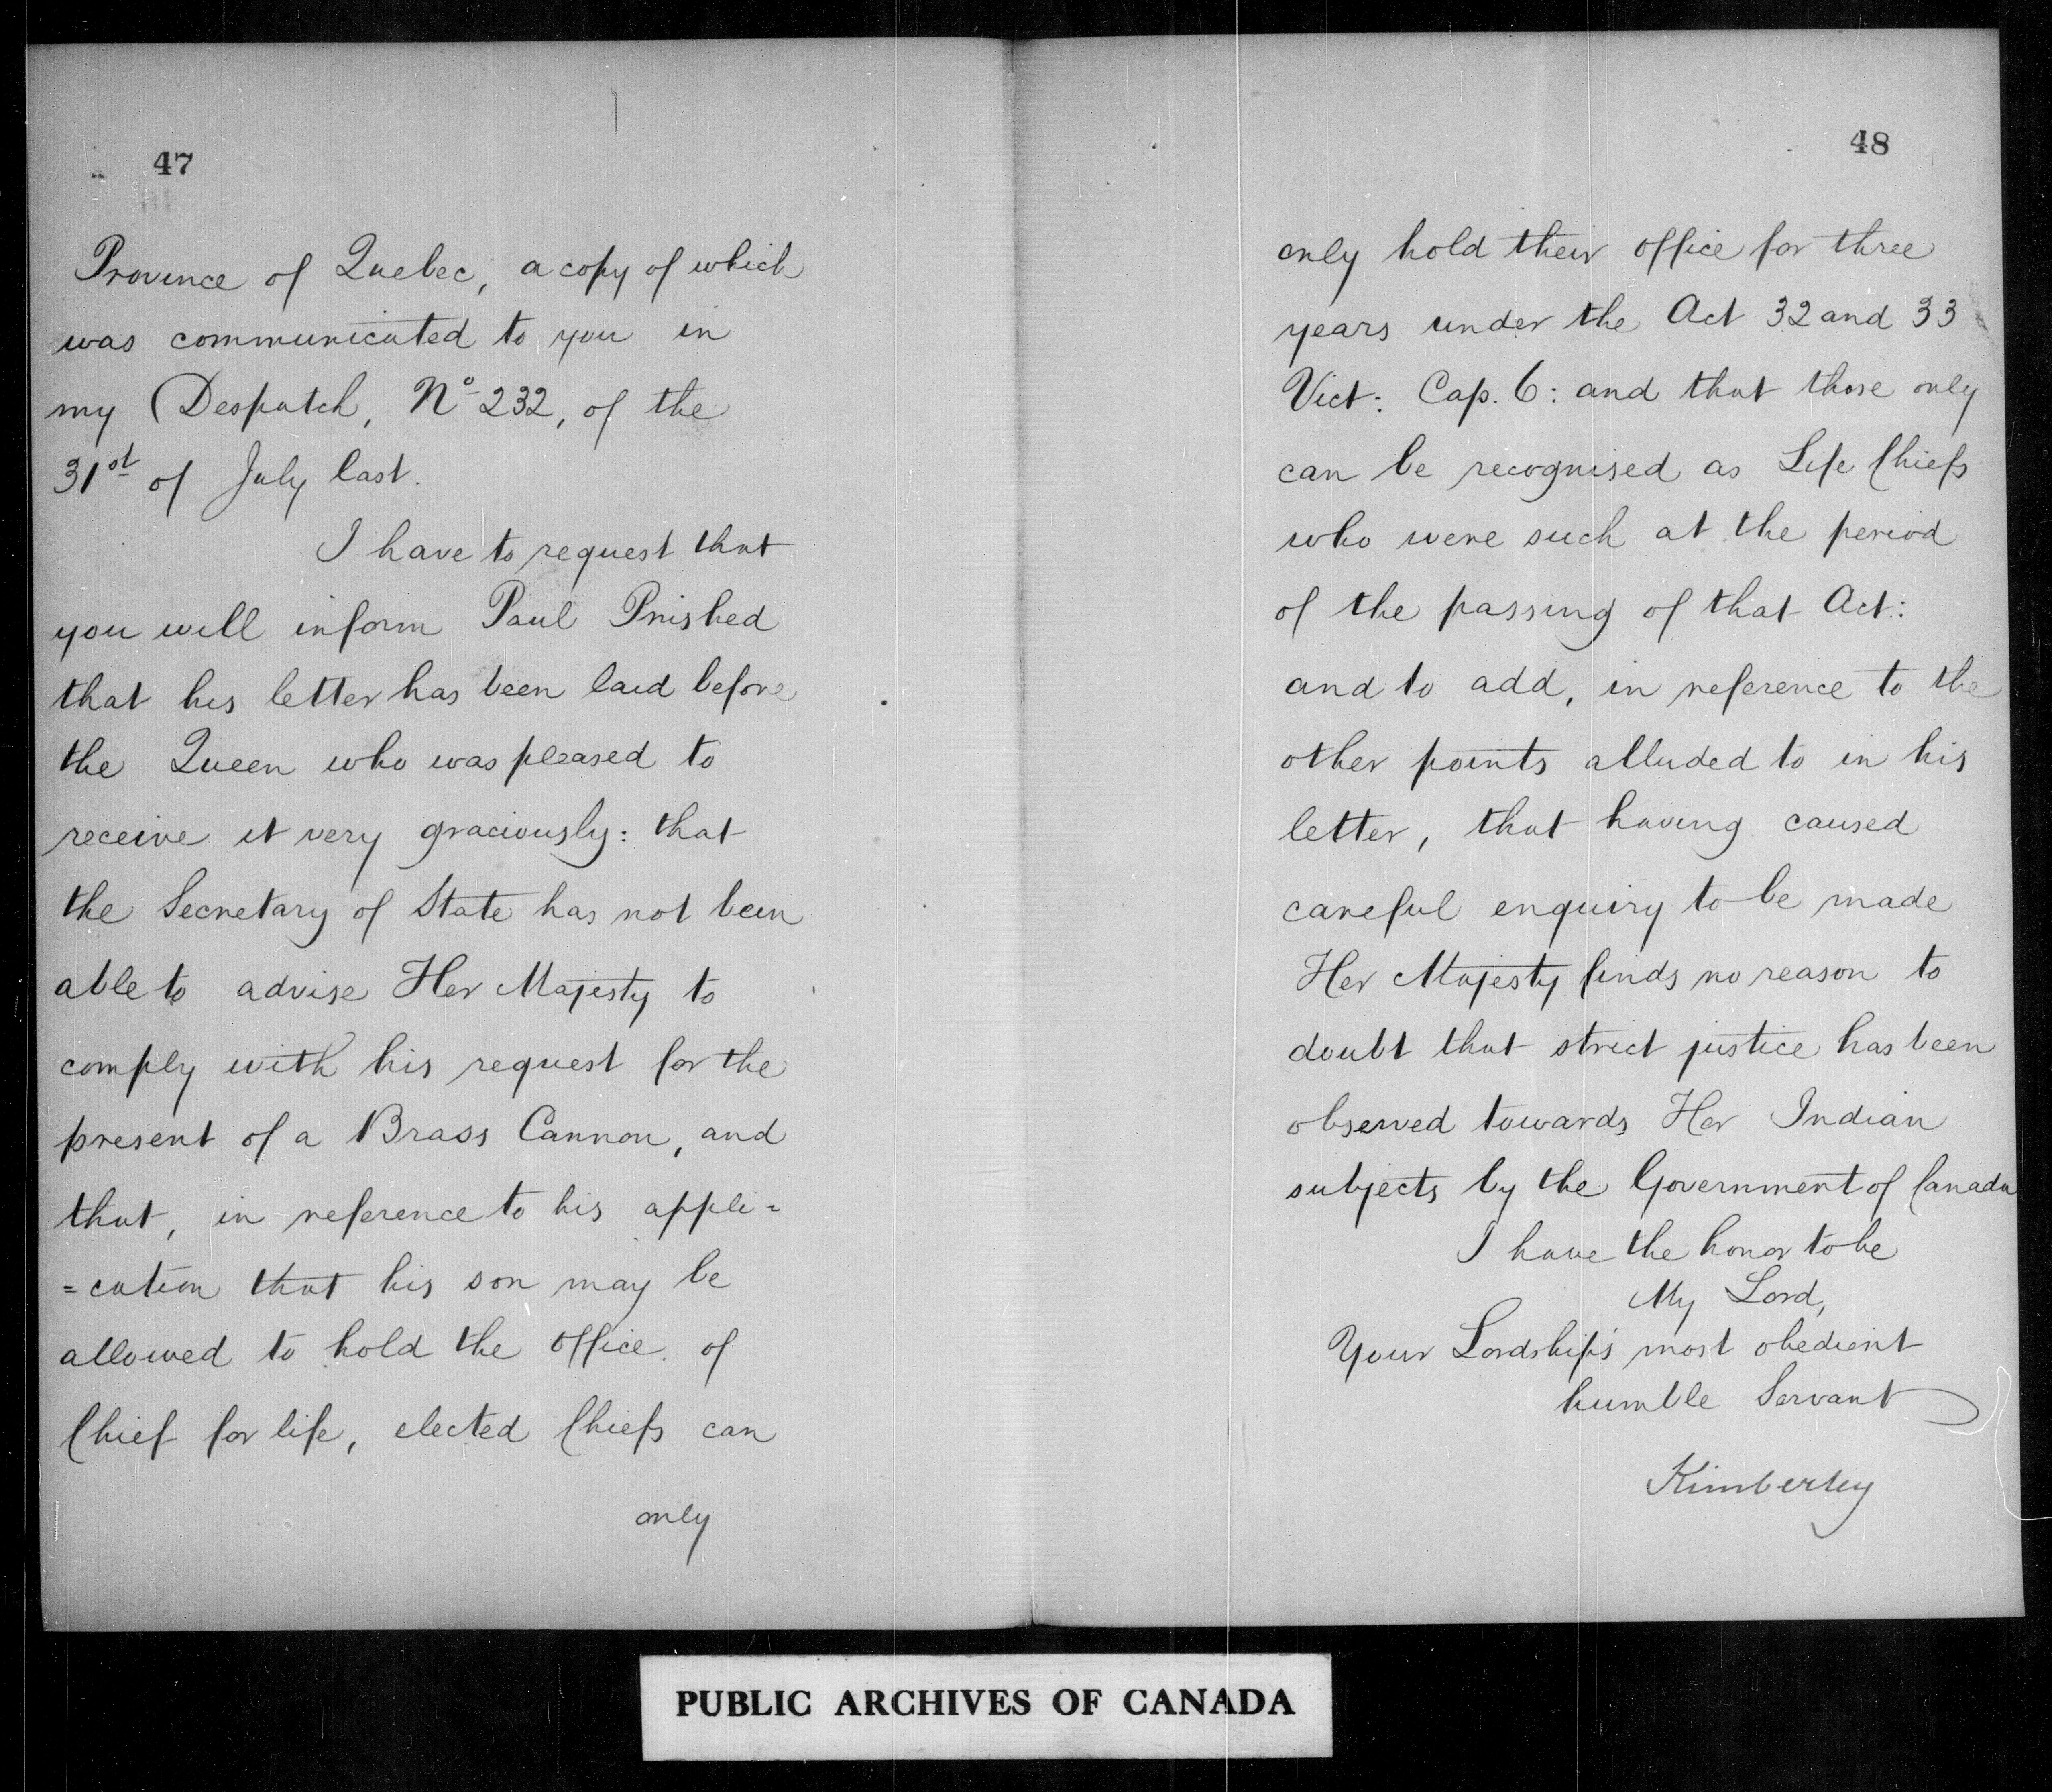 47
Province of Quebec, a copy of which
was communicated to you in
my Despatch, No 232, of the
31st of July last.
I have to request that
you will inform Paul Pnished
that his letter has been laid before
the Queen who was pleased to
receive it very graciously: that
the Secretary of State has not been
able to advise Her Majesty to
comply with his request for the
present of a Brass Cannon, and
that, in reference to his appli=
=cation that his son may be
allowed to hold the office of
Chief for life, elected Chiefs can
only
48
only hold their office for three
years under the Act 32 and 33
Vict: Cap. 6: and that those only
can be recognised as Life Chiefs
who were such at the period
of the passing of that Act:
and to add, in reference to the
other points alluded to in his
letter, that having caused
careful enquiry to be made
Her Majesty finds no reason to
doubt that strict justice has been
observed towards Her Indian
subjects by the Government of Canada
I have the honor to be
My Lord,
Your Lordship's most obedient
humble Servant
Kimberley
PUBLIC ARCHIVES OF CANADA